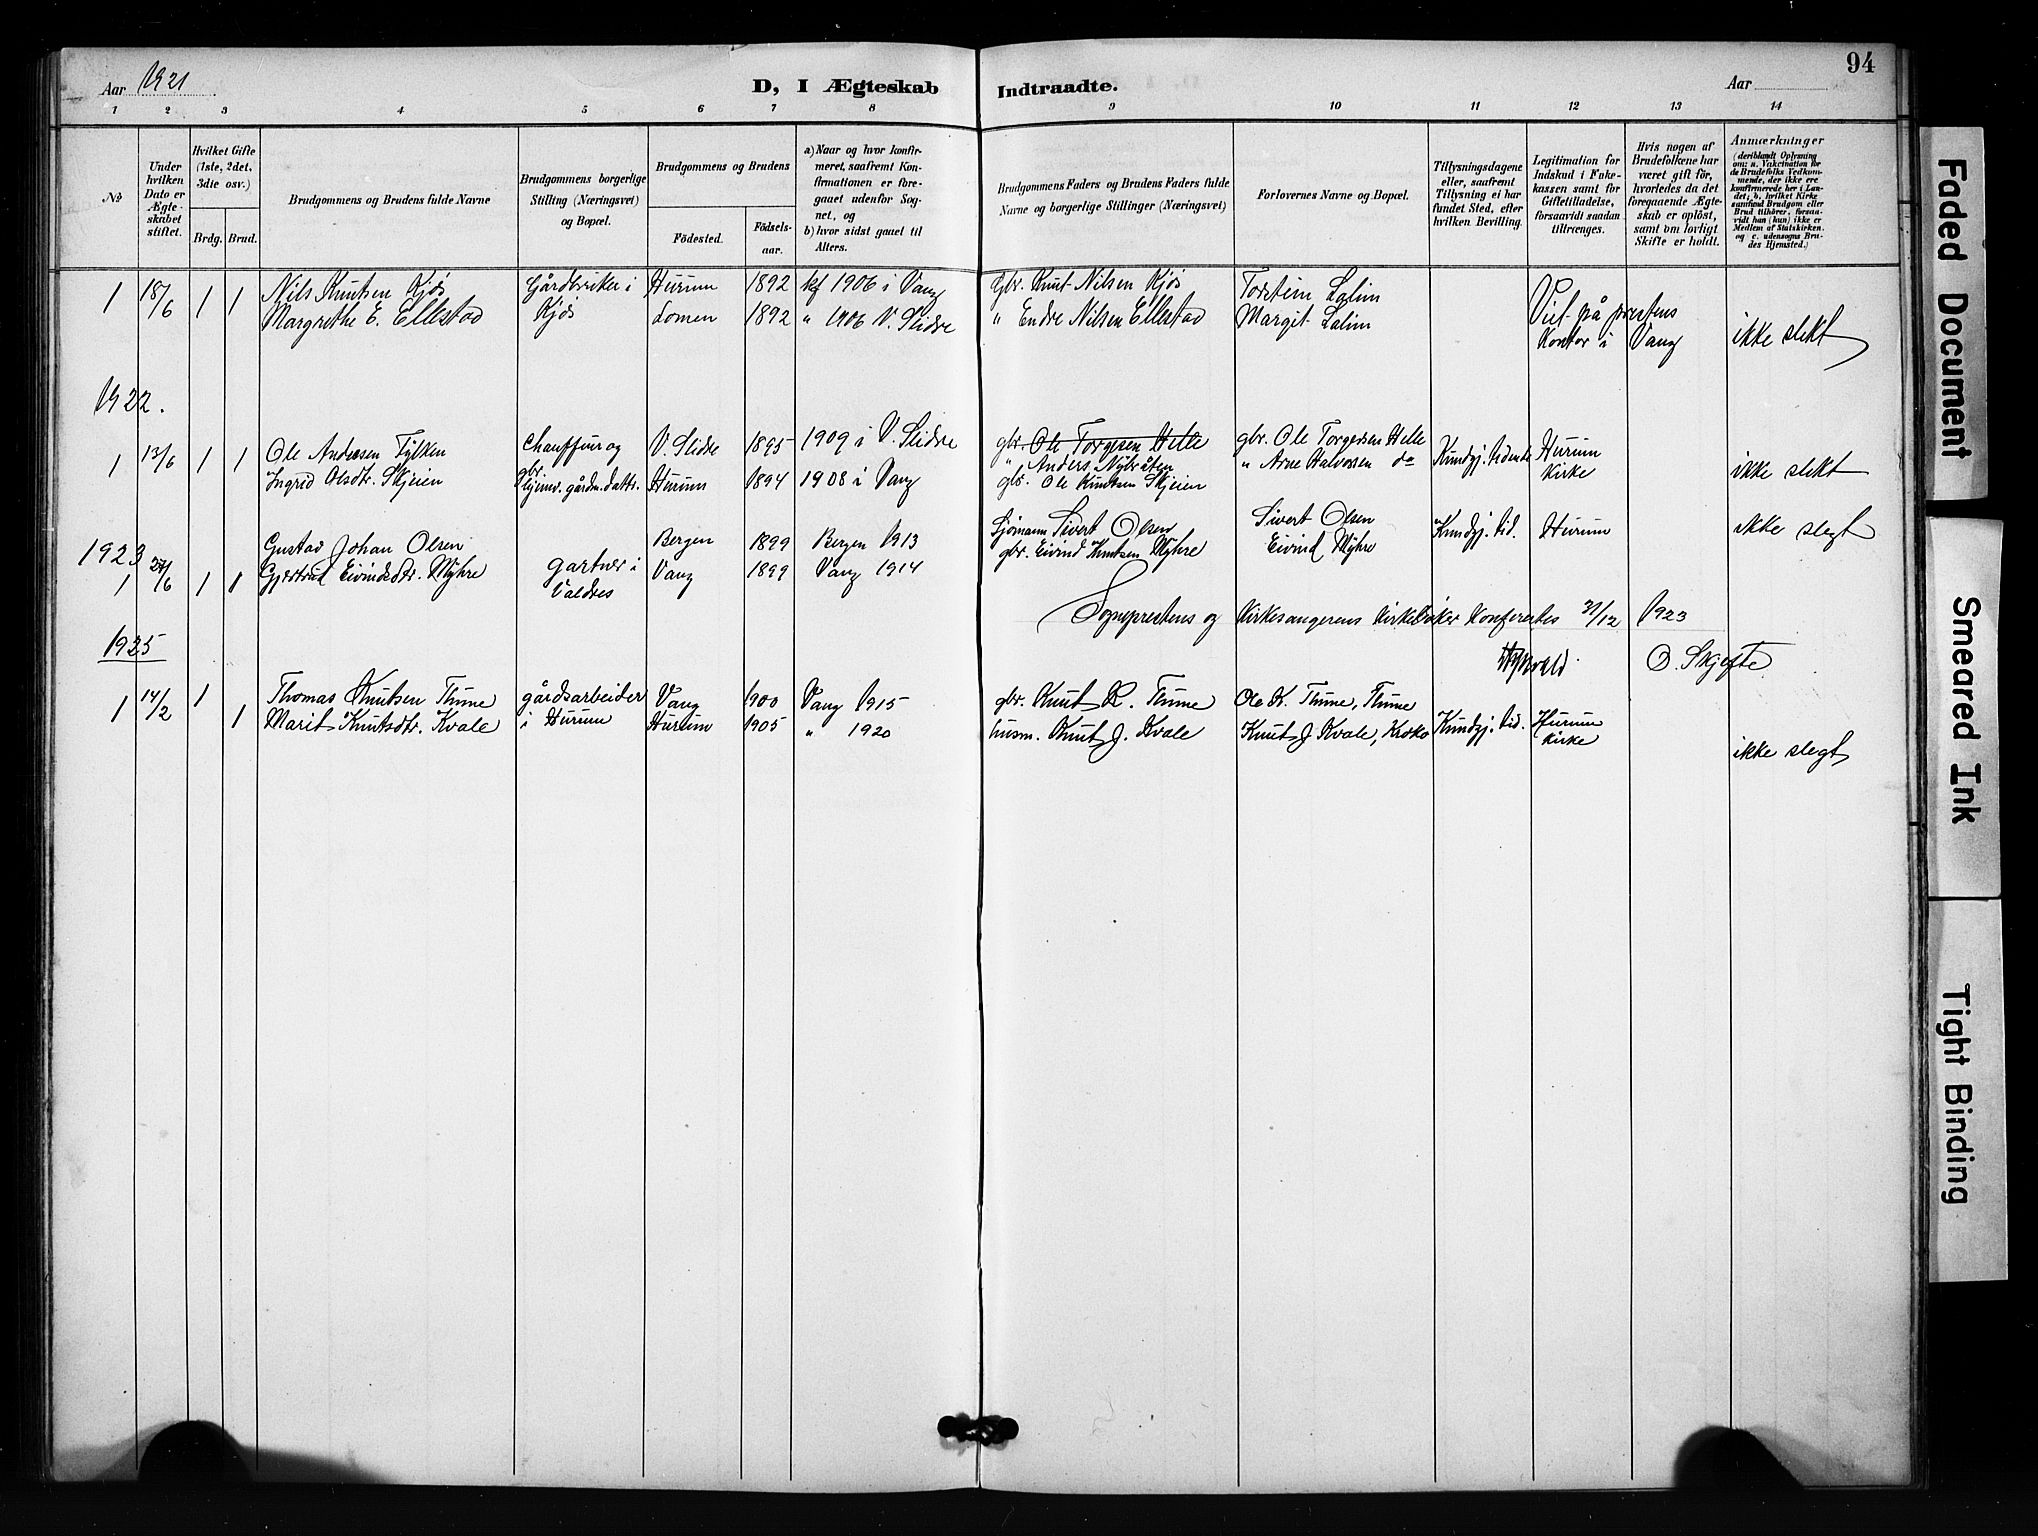 Aar 1921
D, I Ægteskab
Indtraadte.
Aar
94
1 2 3 4 5 6 7 8 9 10 11 12 13 14
No
Under hvilken Dato er Ægteskabet stiftet.
Hvilket Gifte (1ste, 2det, 3die osv.)
Brdg. Brud.
Brudgommens og Brudens fulde Navne
Brudgommens borgerlige Stilling (Næringsvei) og Bopæl.
Brudgommens og Brudens
Födested.
Fødsels-aar.
a) Naar og hvor konfirmeret, saafremt Konfirmationen er foregaaet udenfor Sognet, og
b) hvor sidst gaaet til Alters.
Brudgommens Faders og Brudens Faders fulde Navne og borgerlige Stillinger (Næringsvei)
Forlovernes Navne og Bopæl.
Tillysningsdagene eller, saafremt Tillysning ei har fundet Sted, efter hvilken Bevilling.
Legitimation for Indskud i Enkekassen samt for Giftetilladelse, forsaavidt saadan tiltrænges.
Hvis nogen af Brudefolkene har været gift før, hvorledes da det foregaaende Ægteskab er opløst, samt om lovligt Skifte er holdt.
Anmærkninger
(deriblandt Oplysning om: a. Vakcination for de Brudefolks Vedkommende, der ikke ere konfirmerede her i Landet; b. hvilket Kirkesamfund Brudgom eller Brud tilhører, forsaavidt han (hun) ikke er Medlem af Statskirken. og c. udensogns Brudes Hjemsted.)
1 18/6 1 1 Nils Knutsen Kjøs Gårdbruker i Hurum 1892 kf 1906 i Vang Gbr. Knut Nilsen Kjøs Torstein Lalim
Margrethe E. Ellestad Kjøs Lomen 1892 " 1906 V. Slidre " Endre Nilsen Ellestad Margit Lalim Viet på prestens
Kontor i Vang ikke slekt
1922.
1 13/6 1 1 Ole Andersen Fylken Chauffør og V. Slidre 1895 1909 i V. Slidre gbr. Ole Torgersen Helle gbr. Ole Torgersen Helle Kundgj. tidende Hurum
gbr. " Anders Nybråten " Arne Halvorsen do Kirke
Ingrid Olsdtr. Skjeien hjemv. gårdm. dattr. Hurum 1894 1908 i Vang gbr. Ole Knutsen Skjeien ikke slekt
1923 Gustav Johan Olsen Bergen 1899 Bergen 1913 Sjømann Sivert Olsen Sivert Olsen Kundgj. tid. Hurum ikke slegt
1 27/6 1 1 Gjertrud Eivindsdtr. Myhre gartner i Vang 1899 Vang 1914 gbr. Eivind Knutsen Myhre Eivind Myhre
Valdres
Sogneprestens og Kirkesangerens Kirkebøker Konfereredes 31/12 1923
O. Skjefte
1925
1 14/2 1 Thomas Knutsen Thune gårdsarbeider Vang 1900 Vang 1915 gbr. Knut R. Thune Ole K. Thune, Thune
1 Marit Knutsdtr. Kvale i Hurum Hurum 1905 " 1920 husm. Knut J. Kvale Knut J. Kvale, Kroko Kundgj. tid. Hurum
Kirke
ikke slegt
Faded Document
Smeared Ink
Tight Binding